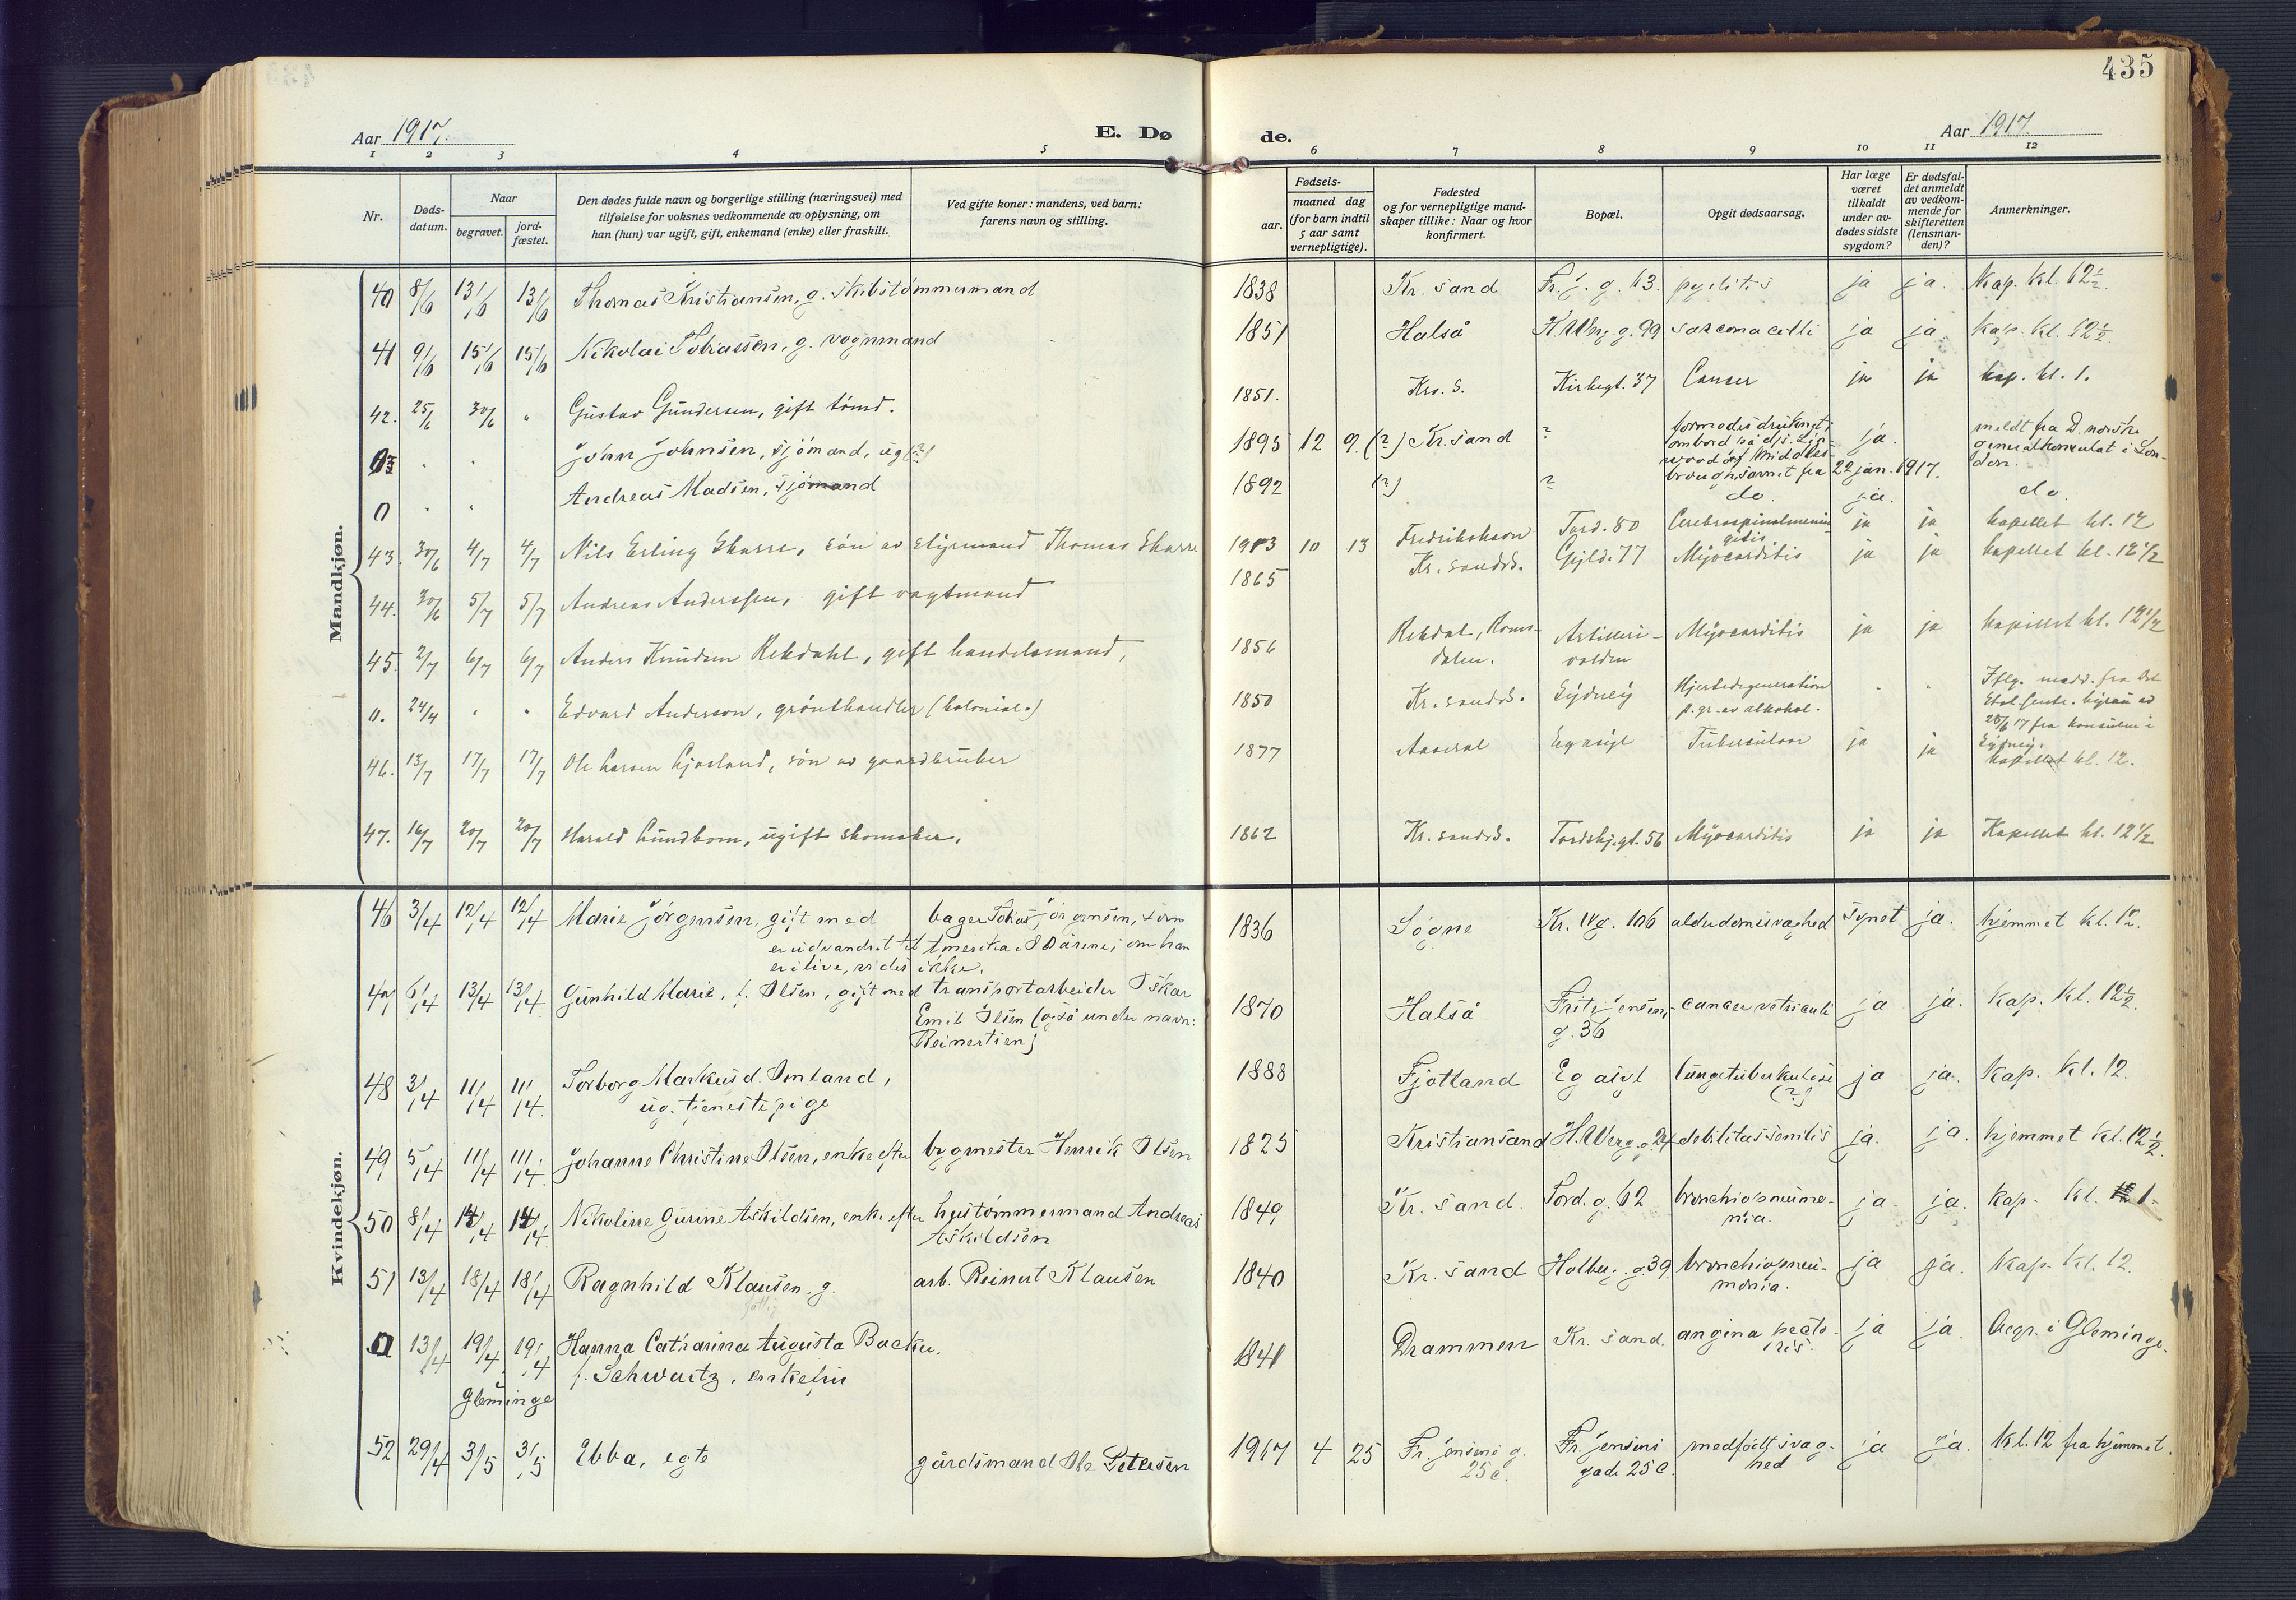 435
Aar 1917. E. Dø de. Aar 1917.
1 2 3 4 5 6 7 8 9 10 11 12
Nr.
Døds-
datum.
Naar
begravet.
jord-
fæstet.
Den dødes fulde navn og borgerlige stilling (næringsvei) med
tilføielse for voksnes vedkommende av oplysning, om
han (hun) var ugift, gift, enkemand (enke) eller fraskilt.
Ved gifte koner: mandens, ved barn:
farens navn og stilling.
Fødsels-
aar.
maaned dag
(for barn indtil
5 aar samt
vernepligtige).
Fødested
og for vernepligtige mand-
skaper tillike: Naar og hvor
konfirmert.
Bopæl.
Opgit dødsaarsag.
Har læge
været
tilkaldt
under av-
dødes sidste
sygdom?
Er dødsfal-
det anmeldt
av vedkom-
mende for
skifteretten
(lensman-
den)?
Anmerkninger.
Mandkjøn.
40 8/6 13/6 13/6 Thomas Kristiansen, g. skibstømmermand 1838 Kr. sand Fr. j. g. 13. pyelitis ja ja. Kap. kl. 12½.
41 9/6 15/6 15/6 Nikolai Tobiassen, g. vognmand 1851 Halså K. Werg. g. 99 ja ja kap. kl. 12½.
42. 25/6 30/6 " Gustav Gundersen, gift tömd. 1851. Krs. S. Kirkegt. 37 Cancer ja ja kap. kl. 1.
0 " " John Johnsen, sjømand, ug (?) 1895 12 9. (?) Kr. sand ? formodes druknet,
ombord på d/s.
savnet fra 22 jan. 1917. ja. meldt fra D. norske
generalkonsulat i Lon-
don.
0 " " Andreas Madsen, sjømand 1892 (?) ? do. ja. do.
43. 30/6 4/7 4/7 Nils Erling Skarre, sön av styrmand Thomas Skarre 1913 10 13 Fredrikshavn Tord. 80 Cerebrospinalmenin
gitis ja ja kapellet kl. 12
44. 30/6 5/7 5/7 Andreas Anderssen, gift vagtmand 1865 Kr. sands. Gyld. 77 Myocarditis ja ja kapellet kl. 12½
45. 2/7 6/7 6/7 Anders Knudsen Rekdahl, gift handelsmand, 1856 Rekdal, Roms-
dalen. Artilleri-
volden Myocarditis ja ja kapellet kl. 12½
0. 24/4 " " Edvard Anderson, grönthandler (kolonial.) 1850 Kr. sands. Sydney Hjertedegeneration
p. gr. av alkohol. " " Iflg. medd. fra det
Stat. sentr. byrau av
28/6 17 fra konsulen i
Sydney.
46. 13/7 17/7 17/7 Ole Larsen Ljosland, sön av gaardbruker 1877 Aaseral Eg asyl Tuberculose ja ja kapellet kl. 12.
47. 16/7 20/7 20/7 Harald Lundbom, ugift skomaker. 1862 Kr. sands. Tordskj. gt. 56 Myocarditis ja ja Kapellet kl. 12½
Kvindekjøn.
46 3/4 12/4 12/4 Marie Jörgensen, gift med bager Tobias Jörgensen, som
er udvandret til Amerika i 80 årene; om han
er i live, vides ikke. 1836 Sögne Kr. IV g. 106 alderdomssvaghed synet ja. hjemmet kl. 12.
47 6/4 13/4 13/4 Gunhild Marie, f. Olsen, gift med transportarbeider Oskar
Emil Olsen (også under navn:
Reinertsen) 1870 Halså Fritz Jensens
g. 36 cancer vetriculi ja ja. Kap. kl. 12½.
48 3/4 11/4 11/4 Torborg Markusd. Omland,
ug. tjenestepige 1888 Fjotland Eg asyl lungetuberkulose
(?) ja ja. Kap. kl. 12.
49 5/4 11/4 11/4. Johanne Christine Olsen, enke efter bygmester Henrik Olsen 1825 Kristiansand H. Werg. g. 24 debilitas senilis ja. ja. hjemmet kl. 12½.
50 8/4 14/4 14/4. Nikoline Gurine Askildsen, enke efter hustömmermand Andreas
Askildsen 1849 Kr. sand. Tord. g. 62 bronchiopneumo-
nia. ja. ja. Kap. kl. 1.
51 13/4 18/4 18/4 Ragnhild Klausen, g. arb. Reinert Klausen 1840 Kr. sand Holbg. g. 39. bronchiopneu-
monia. ja ja. Kap. kl. 12.
0 13/4 19/4 19/4 Hanna Catharina Augusta Backer,
f. Schwartz, enkefru 1841 Drammen Kr. sand. angina pecto-
ris. ja ja. begr. i Gleminge.
Gleminge
52 29/4 3/5 3/5 Ebba, egte gårdsmand Ole Petersen 1917 4 25 Fr. Jensens g.
25 c. Fr. Jensens
gade 25 c. medfödt svag-
hed ja ja. kl. 12 fra hjemmet.